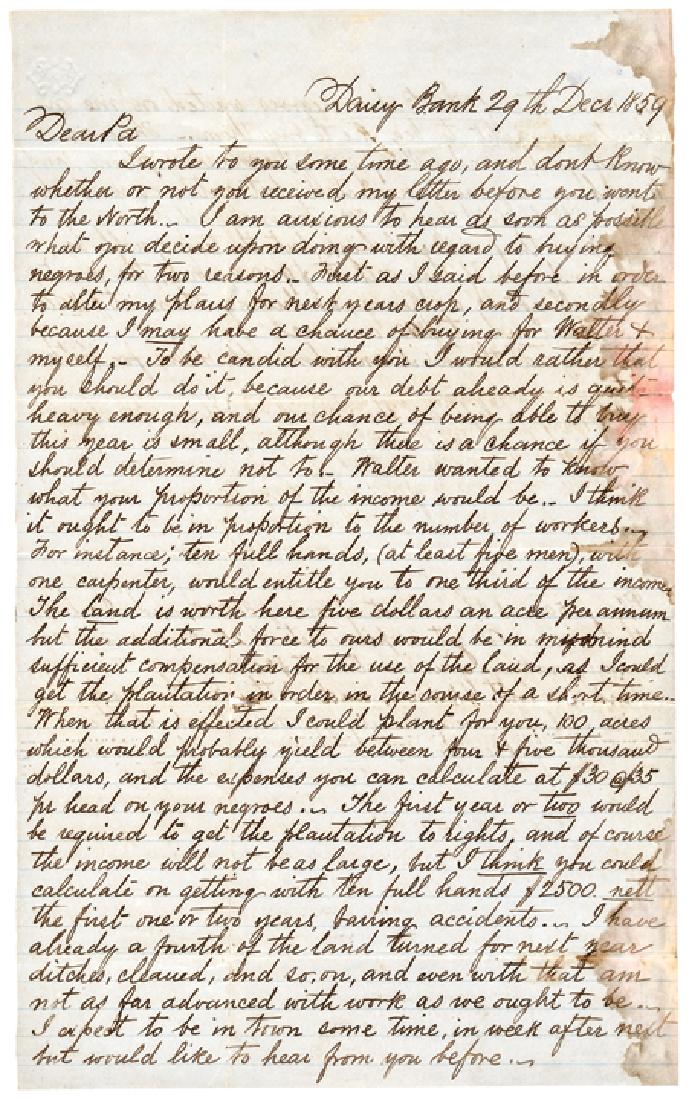 Dairy Bank 29th Decr 1859
Dear Pa
I wrote to you some time ago, and dont know
whether or not you received my letter before you went
to the North... I am anxious to hear as soon as possible
what you decide upon doing with regard to buying
negroes, for two reasons.. First as I said before in order
to alter my plans for next years crop, and secondly
because I may have a chance of buying for Walter &
myself,.. To be candid with you I would rather that
you should do it, because our debt already is quite
heavy enough, and our chance of being able to buy
this year is small, although there is a chance if you
should determine not to.. Walter wanted to know
what your proportion of the income would be... I think
it ought to be in proportion to the number of workers...
For instance; ten full hands, (at least five men), with
one carpenter, would entitle you to one third of the income.
The land is worth here five dollars an acre per annum
but the additional force to ours would be in my mind
sufficient compensation for the use of the land, as I could
get the plantation in order in the course of a short time..
When that is effected I could plant for you, 100 acres
which would probably yield between four & five thousand
dollars, and the expenses you can calculate at $30 @ 35
pr head on your negroes... The first year or two would
be required to get the plantation to rights, and of course
the income will not be as large, but I think you could
calculate on getting with ten full hands $2500. nett
the first one or two years, barring accidents... I have
already a fourth of the land turned for next year
ditches, cleaned, and so, on, and even with that am
not as far advanced with work as we ought to be...
I expect to be in town some time, in week after next
but would like to hear from you before...